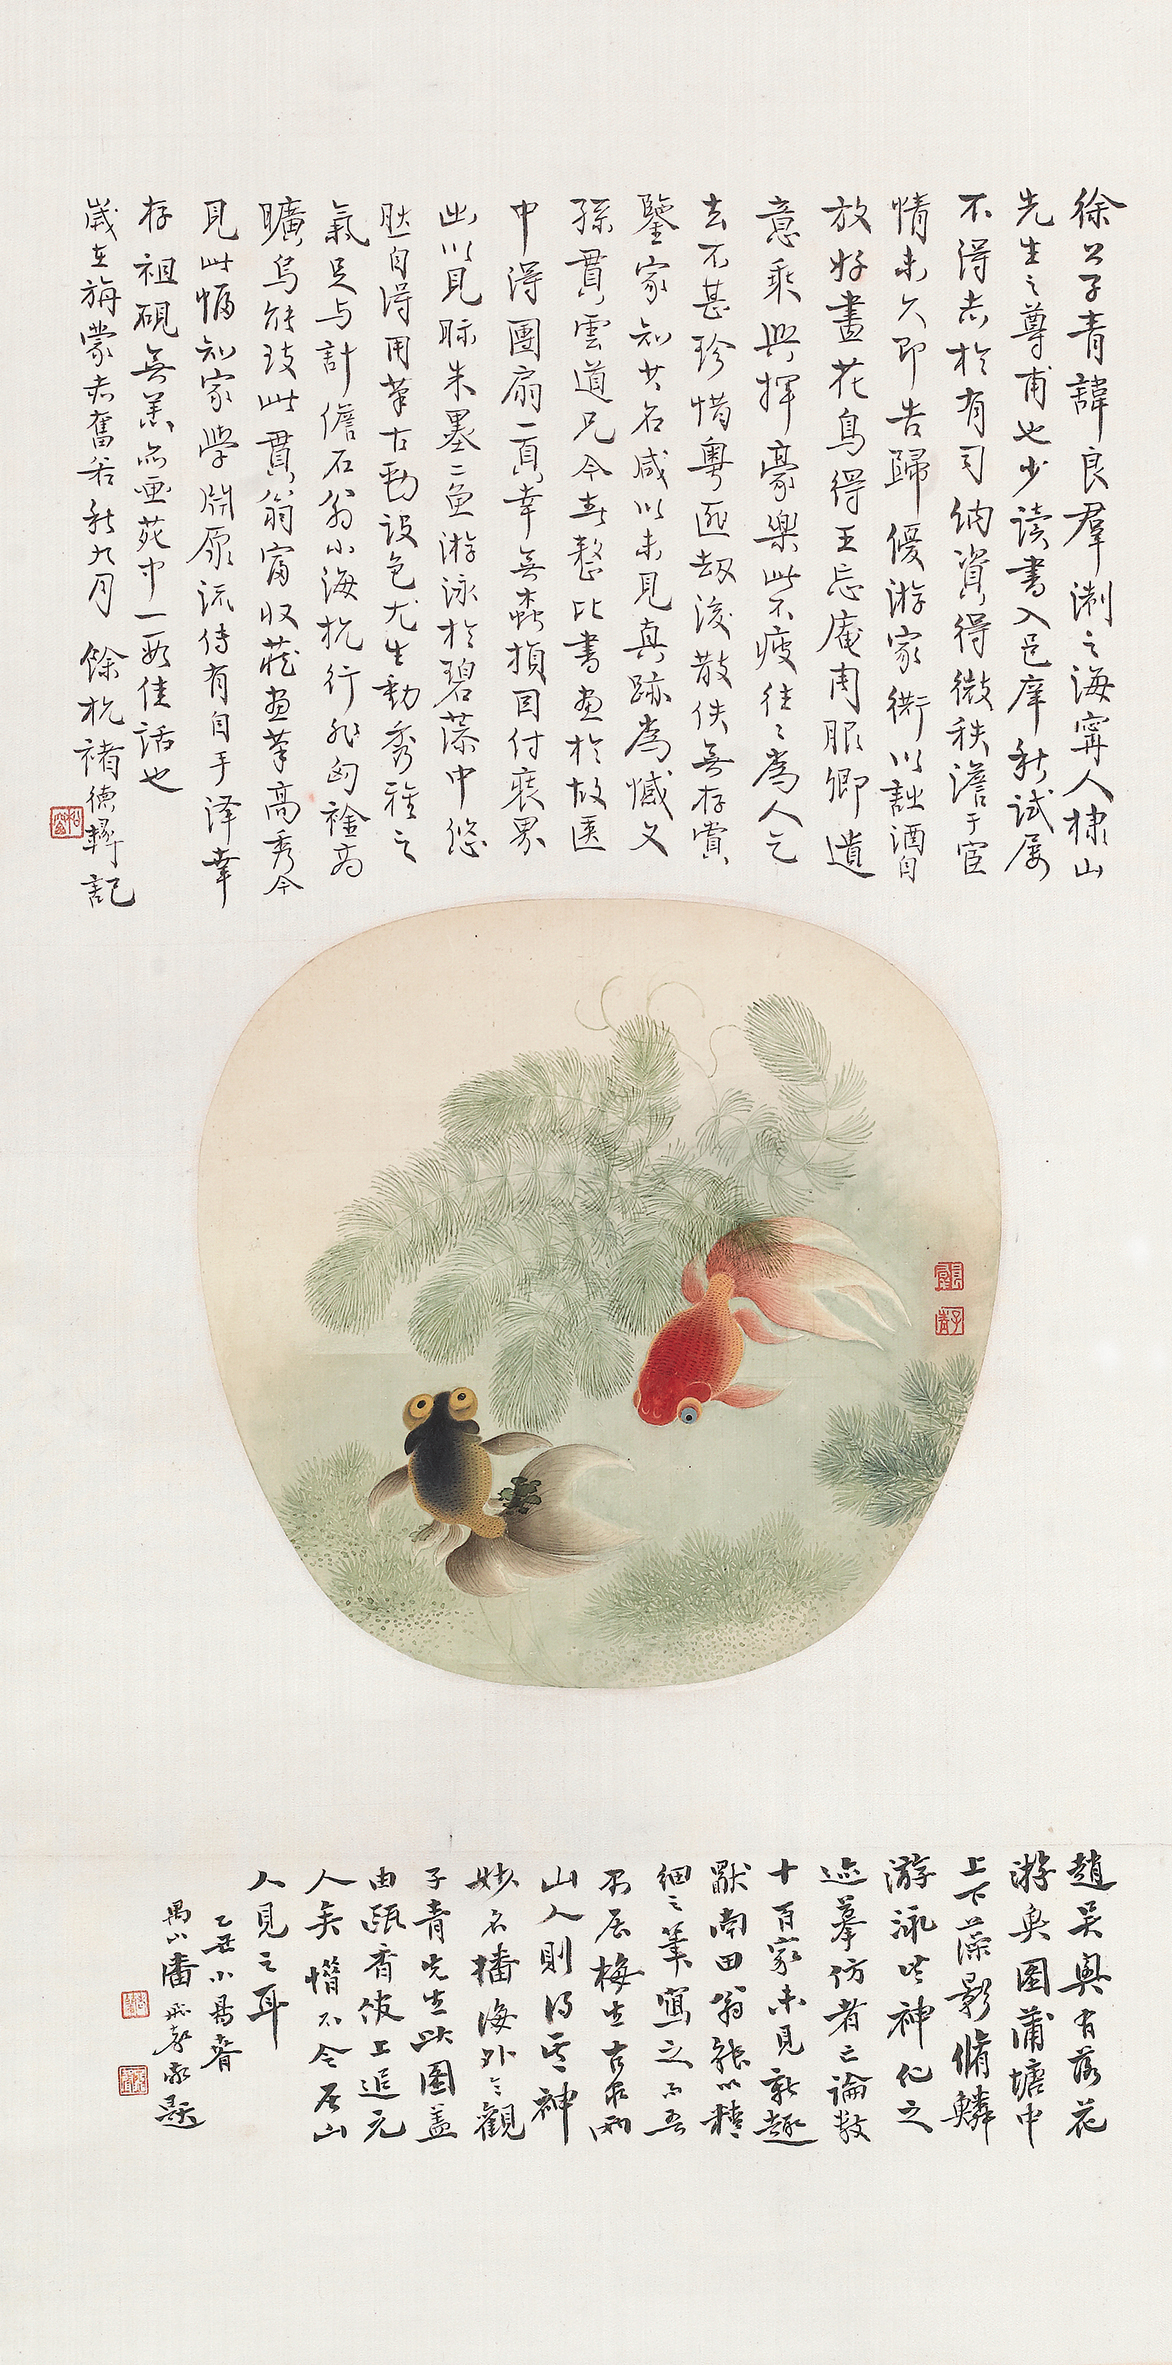 徐公子青諱良羣淛之海寧人棣山
先生之尊甫也少读書入邑庠秋試屡
不得志於有司纳資得微秩澹于宦
情未久即告歸優游家衖以詩酒自
放好畫花鳥得王忘庵周服卿遺
意乘興揮豪樂此不疲往々為人乞
去不甚珍惜粤匪劫後散佚無存賞
鑒家知其名咸以未見真跡為憾文
孫貫雲道兄今春整比書画於故匧
中得團扇一頁幸無蠧損因付裝界
出以見眎朱墨二魚游泳於碧藻中悠
然自得用筆古勁設色尤生動秀雅之
氣足与計儋石翁小海抗行非匈襟高
曠烏能致此貫翁富收藏画筆高秀今
見此幅知家學淵原流传有自手澤幸
存祖硯無恙亦画苑中一段佳話也
歲在旃蒙赤奮若秋九月 餘杭褚德彝記
趙吴興有落花
游魚圖蒲塘中
上下藻影脩鱗
游泳笑神化之
迹摹仿者亡論数
十百家未見新趣
獣南田翁能以精
細之筆寫之而吾
不居梅生古泉兩
山人則得其神
妙名播海外今觀
子青先生此圖盖
由甌香伋上追元
人矣惜不令居山
人見之耳
乙丑小暑脊
禺山潘飛声敬題
子青